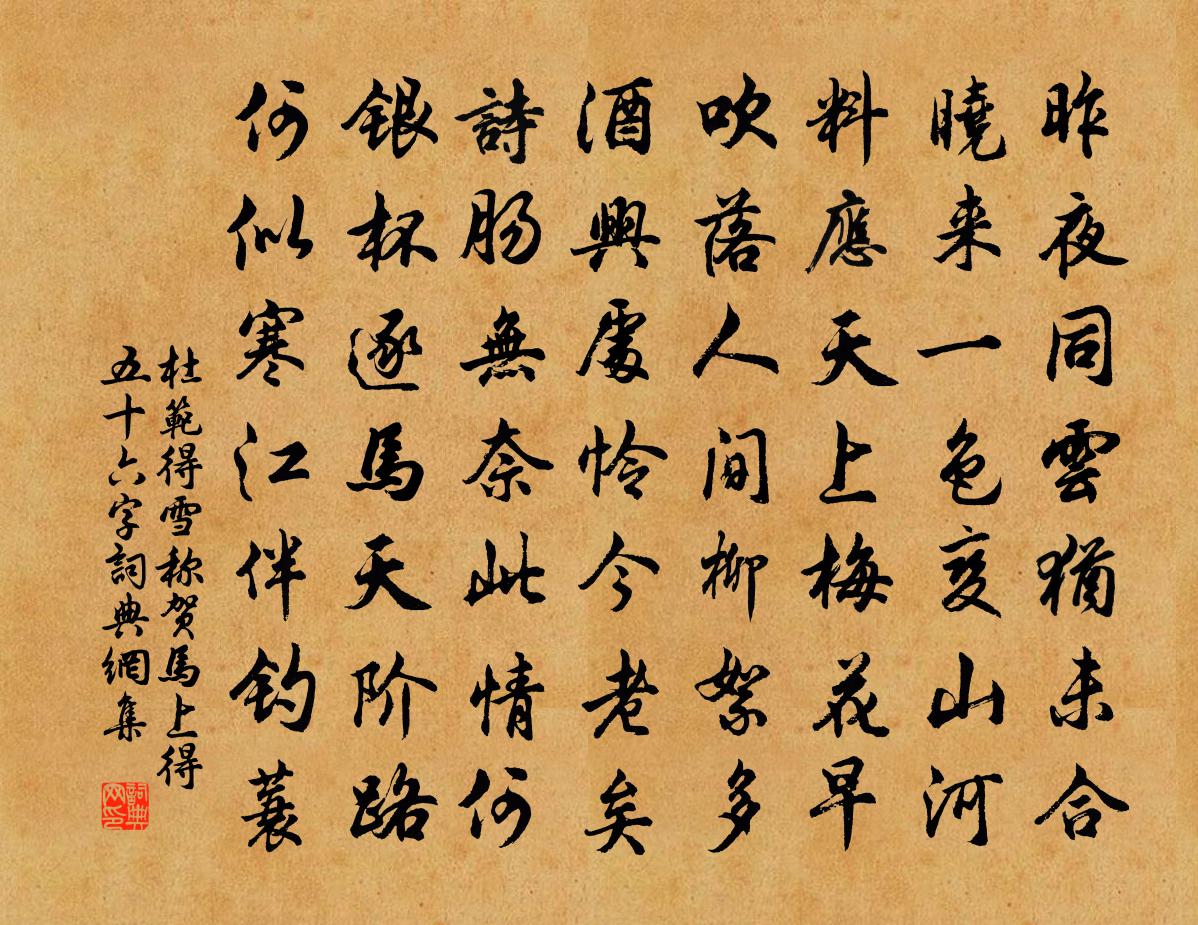 昨夜同雲猶未合
曉来一色变山河
料應天上梅花早
吹落人间柳絮多
酒興處怜今老矣
詩肠無奈此情何
银杯逐馬天阶路
何似寒江伴钓蓑
杜範得雪称贺馬上得
五十六字詞典網集
詞典
网印